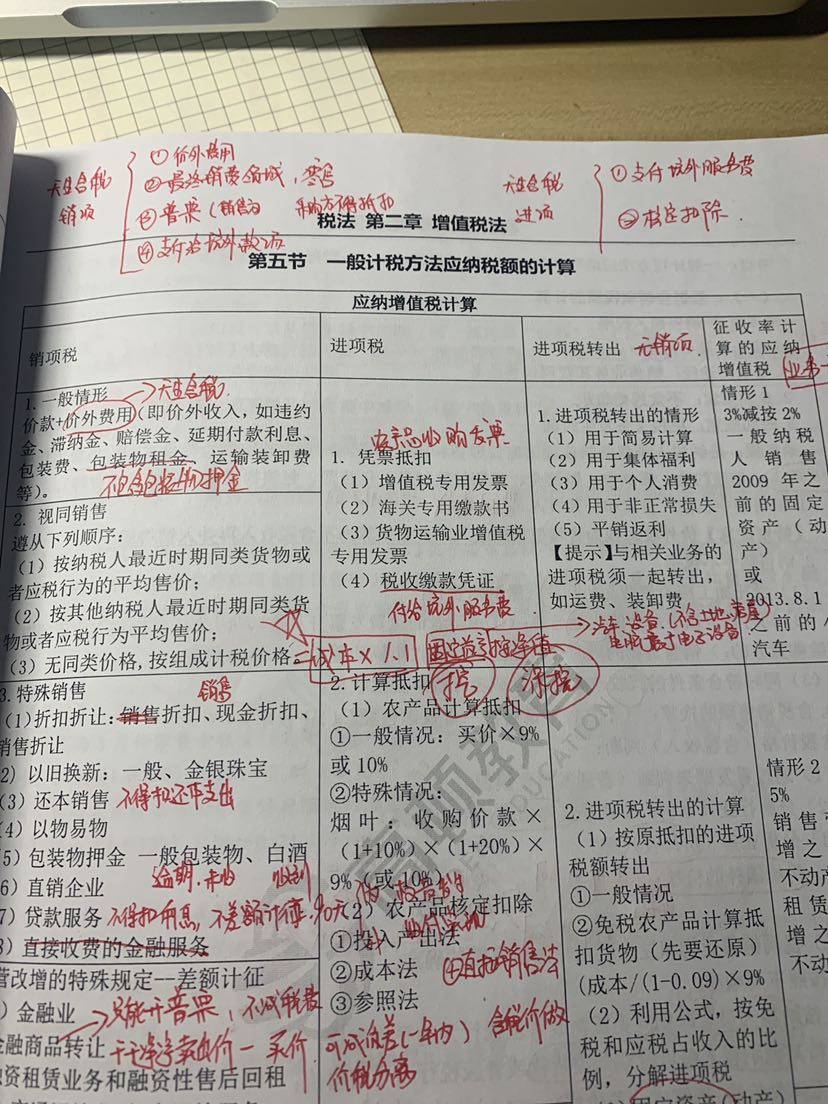 天生含税
销项
①价外费用
②最终消费领域，零售
③普票（销售方 购方不得抵扣
④支付给境外款项
天生含税
进项
①支付境外服务费
②核定扣除.
税法 第二章 增值税法
第五节 一般计税方法应纳税额的计算
应纳增值税计算
销项税
进项税
进项税转出 无销项.
征收率计
算的应纳
增值税
业务一
1. 一般情形 天生含税.
价款+价外费用（即价外收入，如违约
金、滞纳金、赔偿金、延期付款利息、
包装费、包装物租金、运输装卸费
等）。 不包含包装物押金
2. 视同销售
遵从下列顺序：
（1）按纳税人最近时期同类货物或
者应税行为的平均售价；
（2）按其他纳税人最近时期同类货
物或者应税行为平均售价；
（3）无同类价格，按组成计税价格。
=成本×1.1
3. 特殊销售 销售
（1）折扣折让：销售折扣、现金折扣、
销售折让
2）以旧换新：一般、金银珠宝
（3）还本销售 不得扣还本支出
（4）以物易物
5）包装物押金 一般包装物、白酒
逾期，未收 收到
6）直销企业
7）贷款服务 不得扣利息，不差额计征，90天
8）直接收费的金融服务
营改增的特殊规定--差额计征
）金融业 只能开普票，
金融商品转让 卖出价－买价
融资租赁业务和融资性售后回租
农产品收购发票
1. 凭票抵扣
（1）增值税专用发票
（2）海关专用缴款书
（3）货物运输业增值税
专用发票
（4）税收缴款凭证
付给境外服务费
2. 计算抵扣
（1）农产品计算抵扣
①一般情况：买价×9%
或10%
②特殊情况：
烟叶：收购价款×
（1+10%）×（1+20%）×
9%（或10%）
（2）农产品核定扣除
①投入产出法
②成本法 ④直接销售法
③参照法
含税价做
价税分离
1. 进项税转出的情形
（1）用于简易计算
（2）用于集体福利
（3）用于个人消费
（4）用于非正常损失
（5）平销返利
【提示】与相关业务的
进项税须一起转出，
如运费、装卸费
2. 进项税转出的计算
（1）按原抵扣的进项
税额转出
①一般情况
②免税农产品计算抵
扣货物（先要还原）
(成本/(1-0.09)×9%
（2）利用公式，按免
税和应税占收入的比
例，分解进项税
固定资产(动产)
情形 1
3%减按 2%
一般纳税
人销售
2009 年之
前的固定
资产（动
产）
或
2013.8.1
之前的小
汽车
情形 2
5%
销售
增之
不动产
租赁
增之
不动